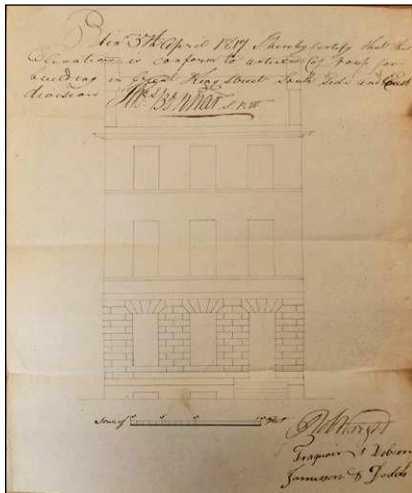 Edin 5th April 1817 I hereby certify that this
Elevation is conform to articles of roup for
building in Great King Street South Side and East
division
Thos Bonnar S.P.W.
Scale of
Feet
Traquair & Dobson
Jamieson & Dodds